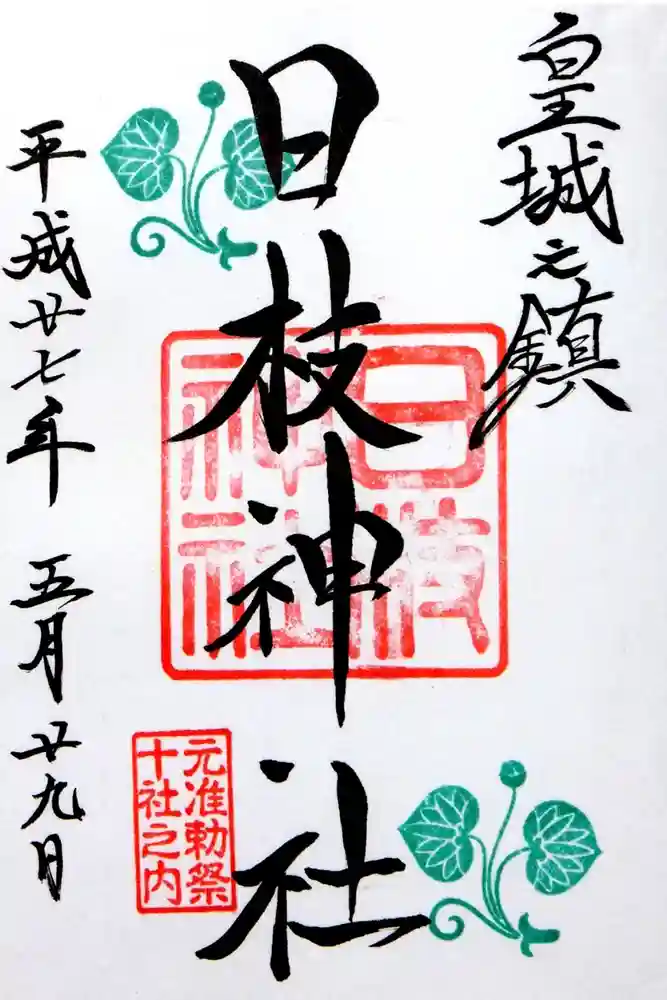 皇城之鎮
日枝神社
日枝
神社
元准勅祭
十社之内
平成廿七年 五月廿九日